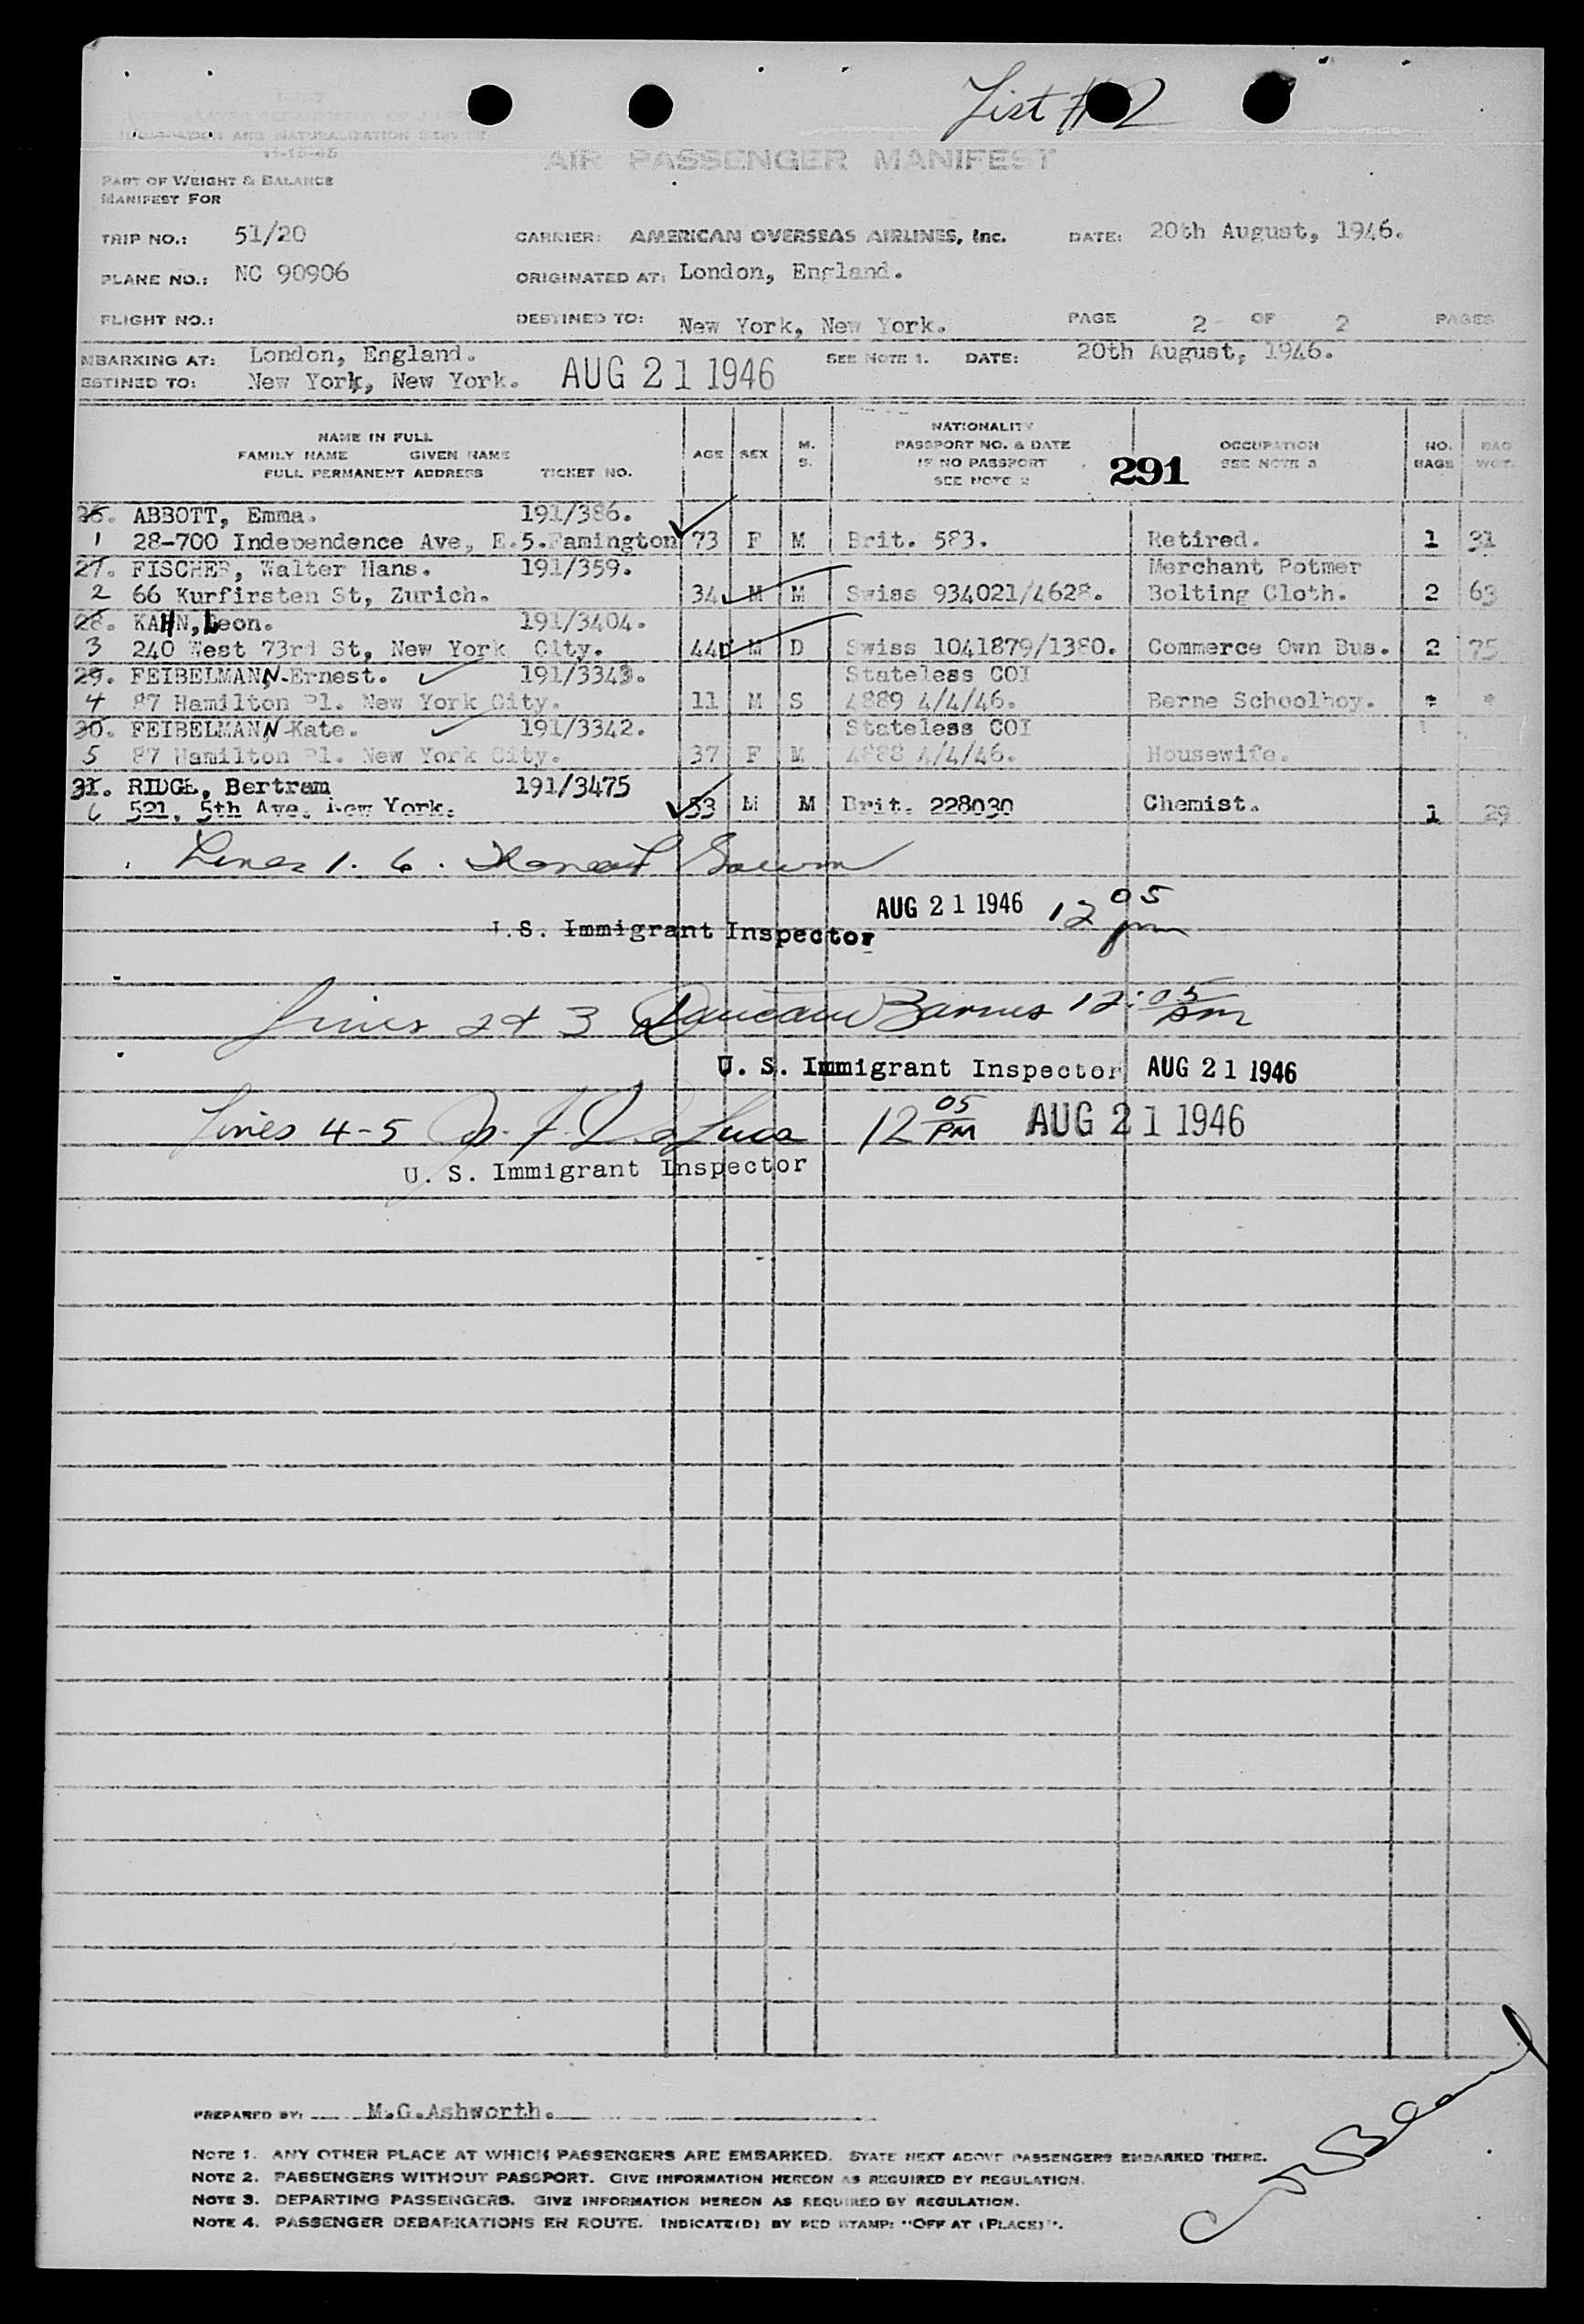 List # 2
IMMIGRATION AND NATURALIZATION SERVICE
11-15-45
AIR PASSENGER MANIFEST
PART OF WEIGHT & BALANCE
MANIFEST FOR
TRIP NO.: 51/20 CARRIER: AMERICAN OVERSEAS AIRLINES, Inc. DATE: 20th August, 1946.
PLANE NO.: NC 90906 ORIGINATED AT: London, England.
FLIGHT NO.: DESTINED TO: New York, New York. PAGE 2 OF 2 PAGES
MBARKING AT: London, England. SEE NOTE 1. DATE: 20th August, 1946.
ESTINED TO: New York, New York. AUG 21 1946
NAME IN FULL
FAMILY NAME GIVEN NAME
FULL PERMANENT ADDRESS TICKET NO. AGE SEX M. S. NATIONALITY PASSPORT NO. & DATE IF NO PASSPORT SEE NOTE 2 OCCUPATION SEE NOTE 3 NO. BAGS BAG WGT.
291
26. ABBOTT, Emma. 191/386.
1 28-700 Independence Ave, E.5.Famington 73 F M Brit. 583. Retired. 1 31
27. FISCHER, Walter Hans. 191/359. Merchant Potmer
2 66 Kurfirsten St, Zurich. 34 M M Swiss 934021/4628. Bolting Cloth. 2 63
28. KAHN, Leon. 191/3404.
3 240 West 73rd St, New York City. 44 M D Swiss 1041879/1380. Commerce Own Bus. 2 75
29. FEIBELMANN-Ernest. 191/3343. Stateless COI
4 87 Hamilton Pl. New York City. 11 M S 4889 4/4/46. Berne Schoolboy. * *
30. FEIBELMANN-Kate. 191/3342. Stateless COI
5 87 Hamilton Pl. New York City. 37 F M 4888 4/4/46. Housewife.
31. RIDGE, Bertram 191/3475
6 521, 5th Ave. New York. 53 M M Brit. 228030 Chemist. 1 29
Lines 1. 6.
AUG 21 1946 12 05 pm
U.S. Immigrant Inspector
Lines 2 & 3 Duncan Barnes 12:05 pm
U. S. Immigrant Inspector AUG 21 1946
Lines 4-5 12 05 PM AUG 21 1946
U. S. Immigrant Inspector
PREPARED BY: M.G.Ashworth.
NOTE 1. ANY OTHER PLACE AT WHICH PASSENGERS ARE EMBARKED. STATE NEXT ABOVE PASSENGERS EMBARKED THERE.
NOTE 2. PASSENGERS WITHOUT PASSPORT. GIVE INFORMATION HEREON AS REQUIRED BY REGULATION.
NOTE 3. DEPARTING PASSENGERS. GIVE INFORMATION HEREON AS REQUIRED BY REGULATION.
NOTE 4. PASSENGER DEBARKATIONS EN ROUTE. INDICATE(D) BY RED STAMP: "OFF AT (PLACE)".